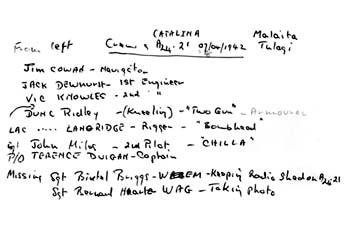 CATALINA Malaita
From left Crew of A24.21 07/04/1942 Tulagi
JIM COWAN - Navigator
JACK DEWHURST - 1st Engineer
VIC KNOWLES - 2nd " "
DUNC Ridley - (Kneeling) - "Two Gun" - Armourer
LAC ..... LANGRIDGE - Rigger - "Bombhead"
Sgt John Milne - 2nd Pilot - "CHILLA"
P/O TERENCE DUIGAN - Captain
Missing Sgt Briggs - WEM - Keeping Radio Shed on A24.21
Sgt Bernard WAG - Taking photo